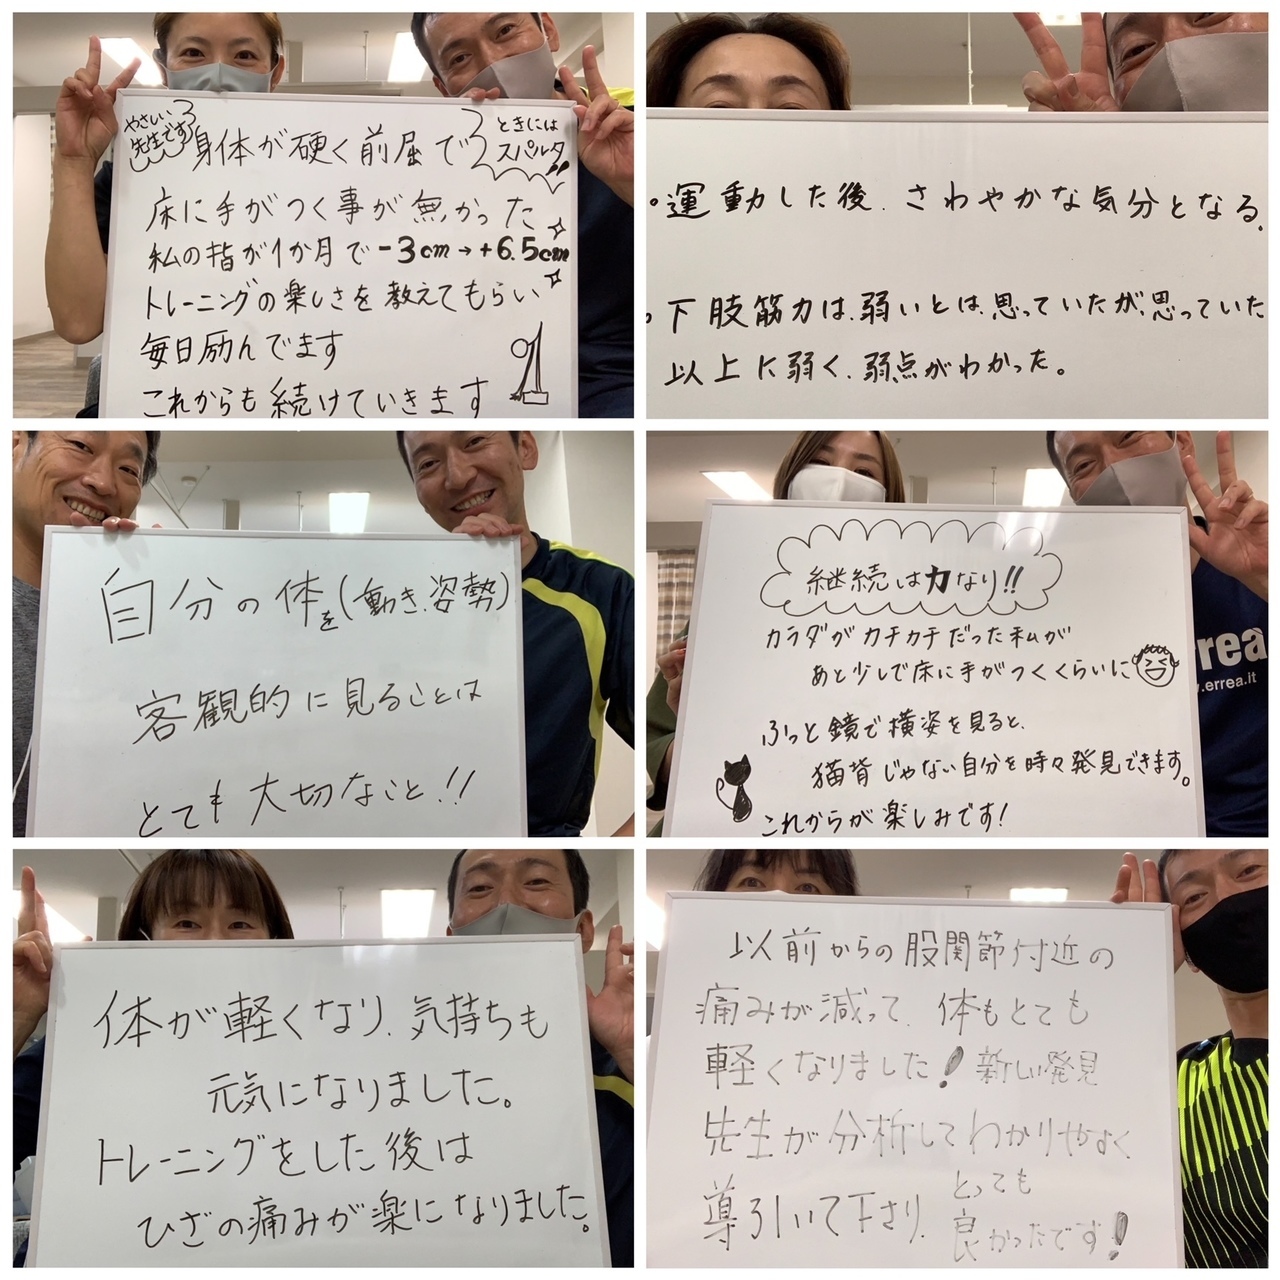 やさしい
先生です
ときには
スパルタ!!
身体が硬く前屈で
床に手がつく事が無かった
私の指が1か月で-3cm→+6.5cm
トレーニングの楽しさを教えてもらい
毎日励んでます
これからも続けていきます
・運動した後、さわやかな気分となる。
・下肢筋力は、弱いとは、思っていたが、思っていた
以上に弱く、弱点がわかった。
自分の体を(動き、姿勢)
客観的に見ることは
とても大切なこと!!
継続は力なり!!
カラダがカチカチだった私が
あと少しで床に手がつくくらいに
ふっと鏡で横姿を見ると、
猫背じゃない自分を時々発見できます。
これからが楽しみです!
rea
.errea.it
体が軽くなり、気持ちも
元気になりました。
トレーニングをした後は
ひざの痛みが楽になりました。
以前からの股関節付近の
痛みが減って、体もとても
軽くなりました!新しい発見
先生が分析してわかりやすく
導引いて下さり、とっても
良かったです!